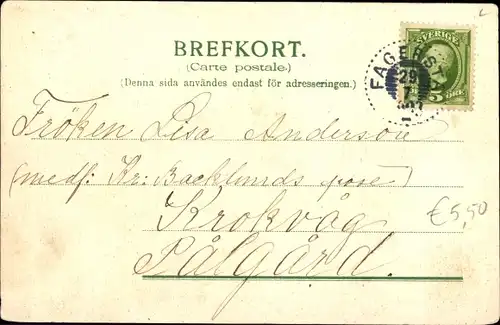 BREFKORT.
(Carte postale.)
(Denna sida användes endast för adresseringen.)
SVERIGE
FAGERSTA
29
7
5 ÖRE
Fröken Lisa Anderson
(medf: Kr: Backlunds pose)
Krokvåg
€5,50
Pålgård.